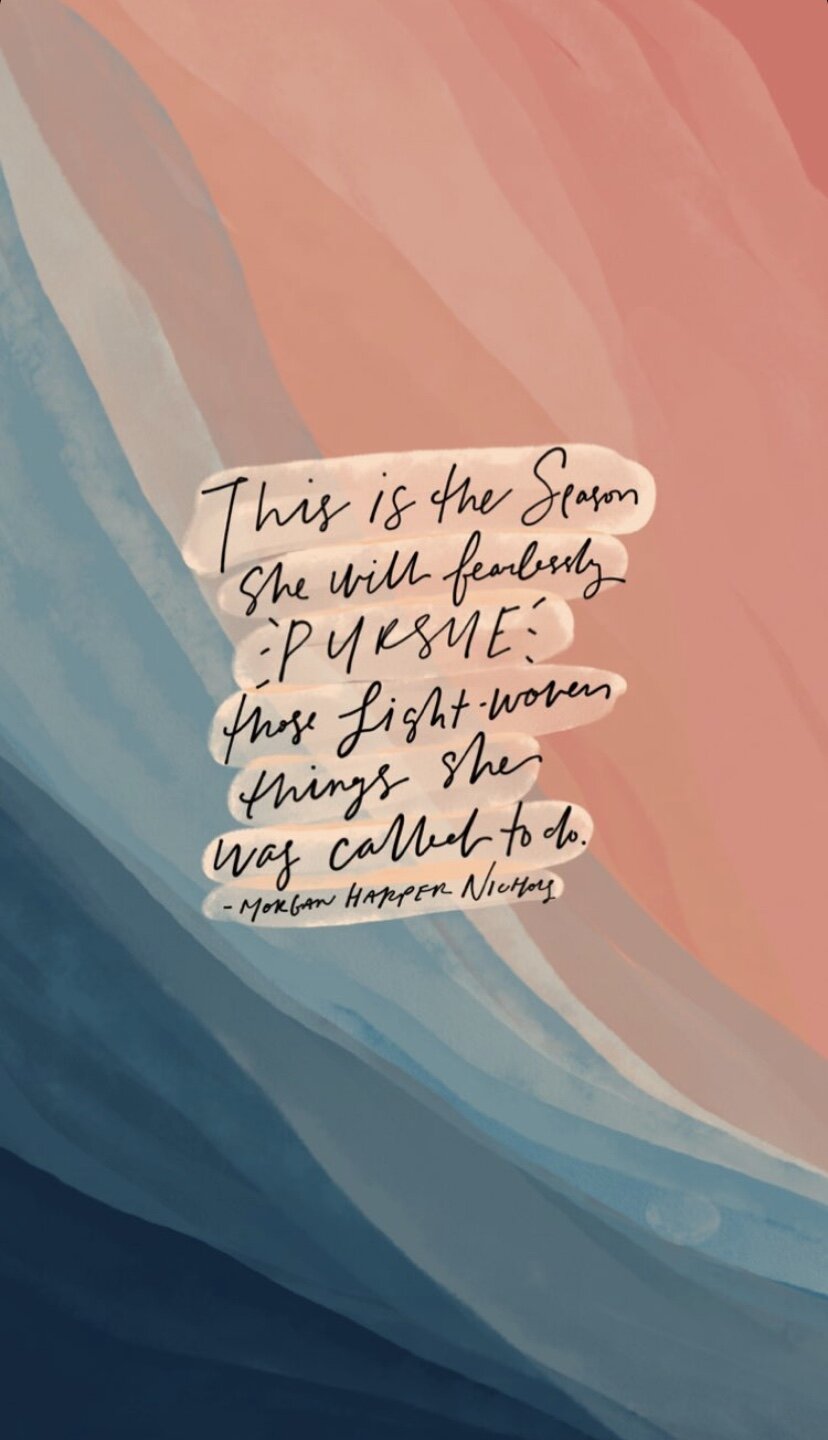 This is the Season
She will fearlessly
PURSUE
those Light-woven
things she
was called to do.
- MORGAN HARPER NICHOLS